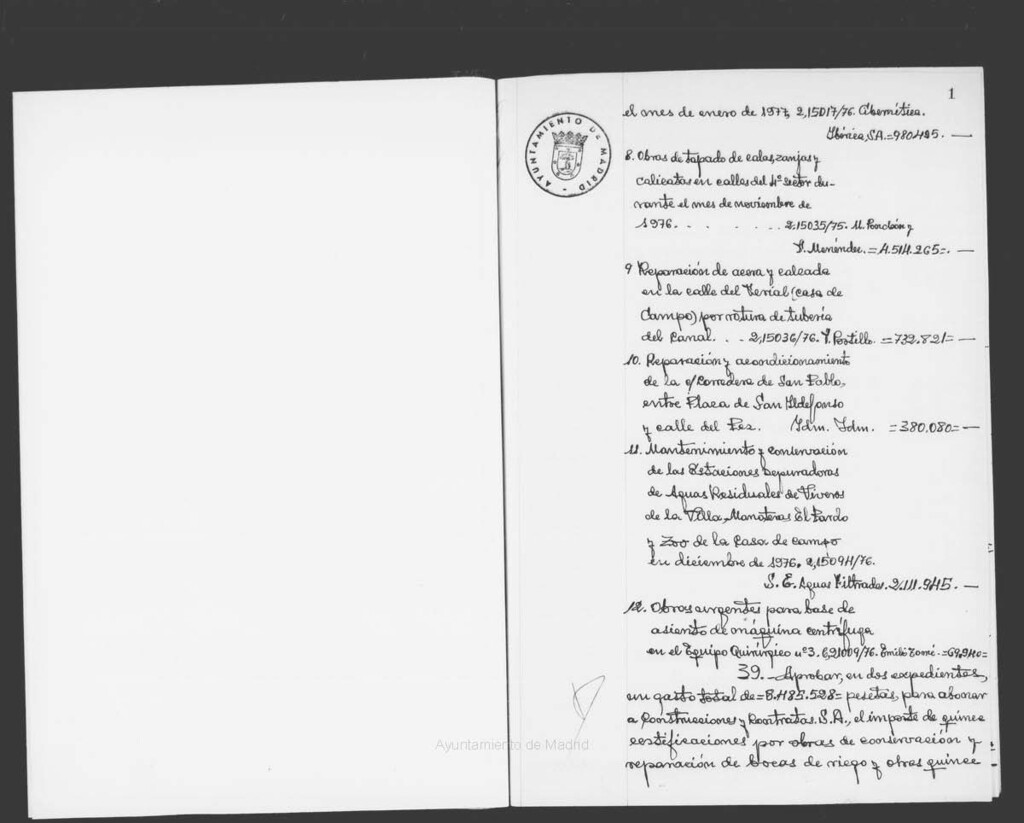 1
AYUNTAMIENTO DE MADRID
el mes de enero de 1977, 2,15017/76. Cibernética.
Ibérica, S.A.=980.485. —
8. Obras de tapado de calas, zanjas y
calicatas en calles del 4º sector du-
rante el mes de noviembre de
1976. . . . . . . 2.15035/75. M. y
P. Menéndez.=4.514.265=. —
9 Reparación de acera y calzada
en la calle del (casa de
Campo) por rotura de tubería
del Canal. . . 2,15036/76. P. Portillo. =732.821= —
10. Reparación y acondicionamiento
de la c/ Corredera de San Pablo,
entre Plaza de San Ildefonso
y calle del Pez. Idm. Idm. =380.080= —
11. Mantenimiento y conservación
de las Estaciones Depuradoras
de Aguas Residuales de Viveros
de la Villa, Manoteras, El Pardo
y Zoo de la Casa de Campo
en diciembre de 1976.
S. E. Aguas Filtradas. 2.111.945. —
12. Obras urgentes para base de
asiento de máquina centrífuga
en el Equipo Quirúrgico nº 3. 6,21009/76. Emilio Tomé.
39. — Aprobar, en dos expedientes,
un gasto total de =8.485.528= pesetas, para abonar
a Construcciones y Contratas. S.A., el importe de quince
certificaciones por obras de conservación y
reparación de bocas de riego y otras quince
Ayuntamiento de Madrid